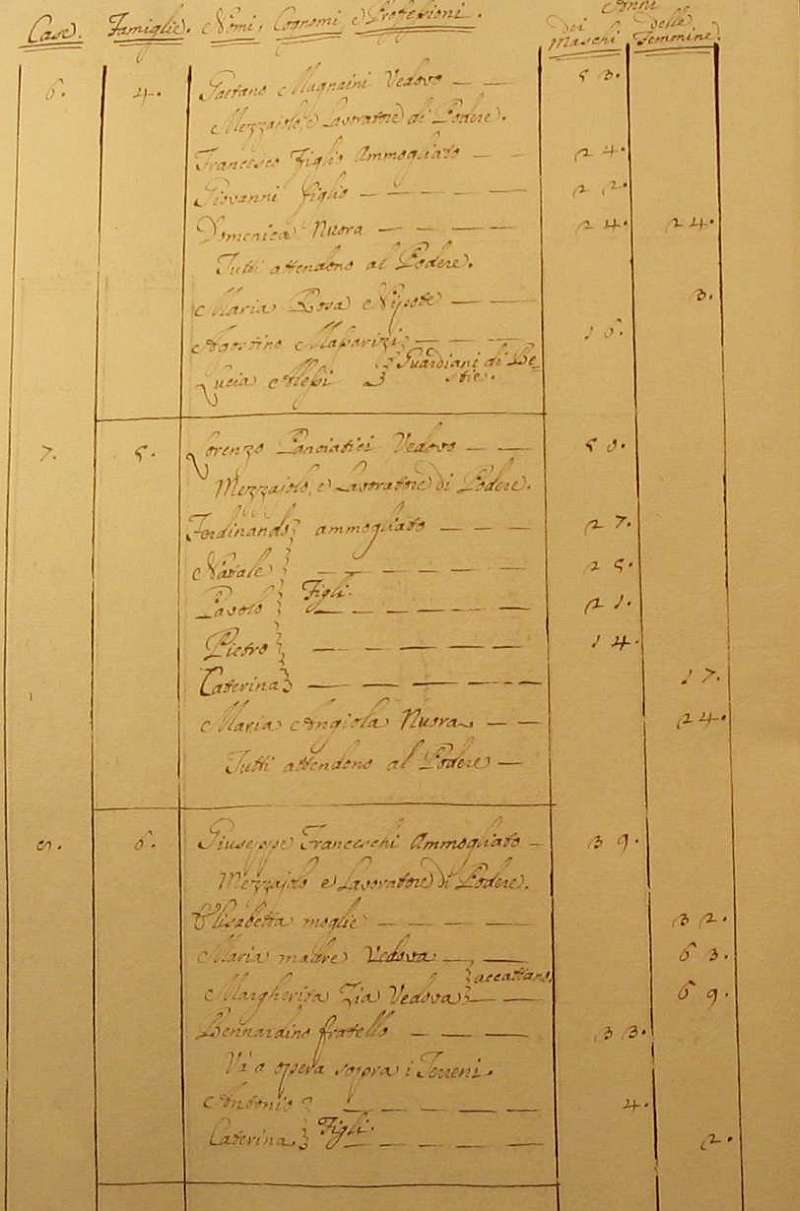 Case. Famiglie. Nomi, Cognomi e Professioni. Anni
Dei Maschi delle Femmine
6. 4. Gaetano Magnaini Vedovo — — 53.
Mezzaiolo, e Lavoratore di Podere.
Francesco figlio Ammogliato — — 24.
Giovanni figlio — — — — — 22.
Domenica Nuora — — — — 24. 24.
Tutti attendono al Podere.
Maria Rosa Nipote — — 3.
Agostino — — — 16.
Lucia Guardiani di Be-
stie.
7. 5. Lorenzo Panciatici Vedovo — — 58.
Mezzaiolo, e Lavoratore di Podere.
Ferdinando ammogliato — — — 27.
Natale — — — — — 25.
Figli.
Paolo — — — — — 21.
Pietro — — — — — 14.
Caterina — — — — — 17.
Maria Angiola Nuora — — 24.
Tutti attendono al Podere —
6. Giuseppe Franceschi Ammogliato — 39.
Mezzajolo e Lavoratore di Podere.
Elisabetta moglie — — — — 32.
Maria madre Vedova — — 63.
accattano.
Margherita Zia Vedova — — 69.
Bernardino fratello — — — 33.
Và a opera sopra i Terreni.
Antonio — — — — 4.
Figli.
Caterina — — — — 2.